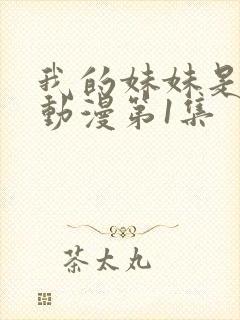 我的妹妹是
動漫第1集
茶太丸